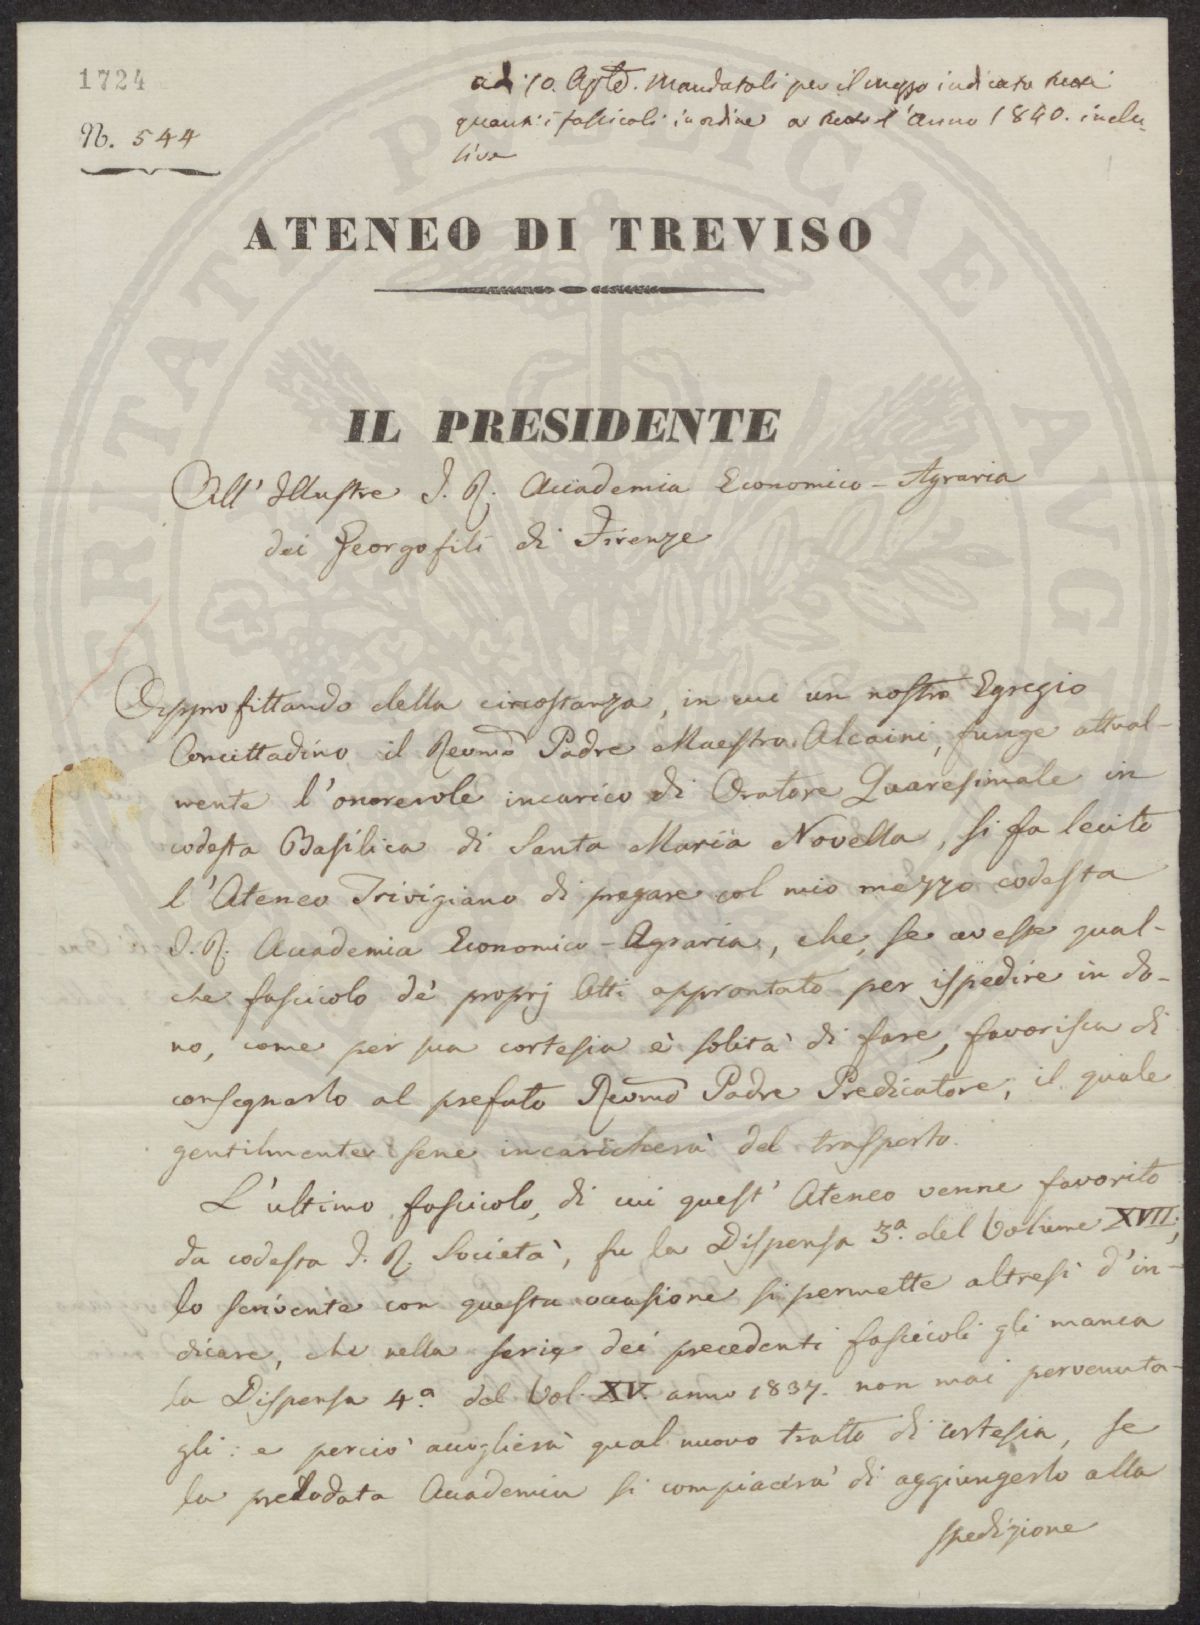 1724
N. 544
adì 10. Aple. Mandatoli per il mezzo indicato
quanti fascicoli in ordine a l'anno 1840. inclu-
sive
ATENEO DI TREVISO
IL PRESIDENTE
All' Illustre I. R. Accademia Economico - Agraria
dei Georgofili di Firenze
Approfittando della circostanza, in cui un nostro Egregio
Concittadino il Revmo Padre Maestro Alcaini, funge attual-
mente l'onorevole incarico di Oratore Quaresimale in
codesta Basilica di Santa Maria Novella, si fa lecito
l'Ateneo Trivigiano di pregare col mio mezzo codesta
I. R. Accademia Economico - Agraria, che, se avesse qual-
che fascicolo de' proprj Atti approntato per ispedire in do-
no, come per sua cortesia è solita di fare, favorisca di
consegnarlo al prefato Revmo Padre Predicatore, il quale
gentilmente sene incaricherà del trasporto.
L'ultimo fascicolo, di cui quest' Ateneo venne favorito
da codesta I. R. Società, fu la Dispensa 3.a del Volume XVII;
lo scrivente con questa occasione si permette altresì d'in-
dicare, che nella serie dei precedenti fascicoli gli manca
la Dispensa 4.a del Vol. XV. anno 1837. non mai pervenuta-
gli: e perciò accoglierà qual nuovo tratto di cortesia, se
la prelodata Accademia si compiacerà di aggiungerlo alla
spedizione